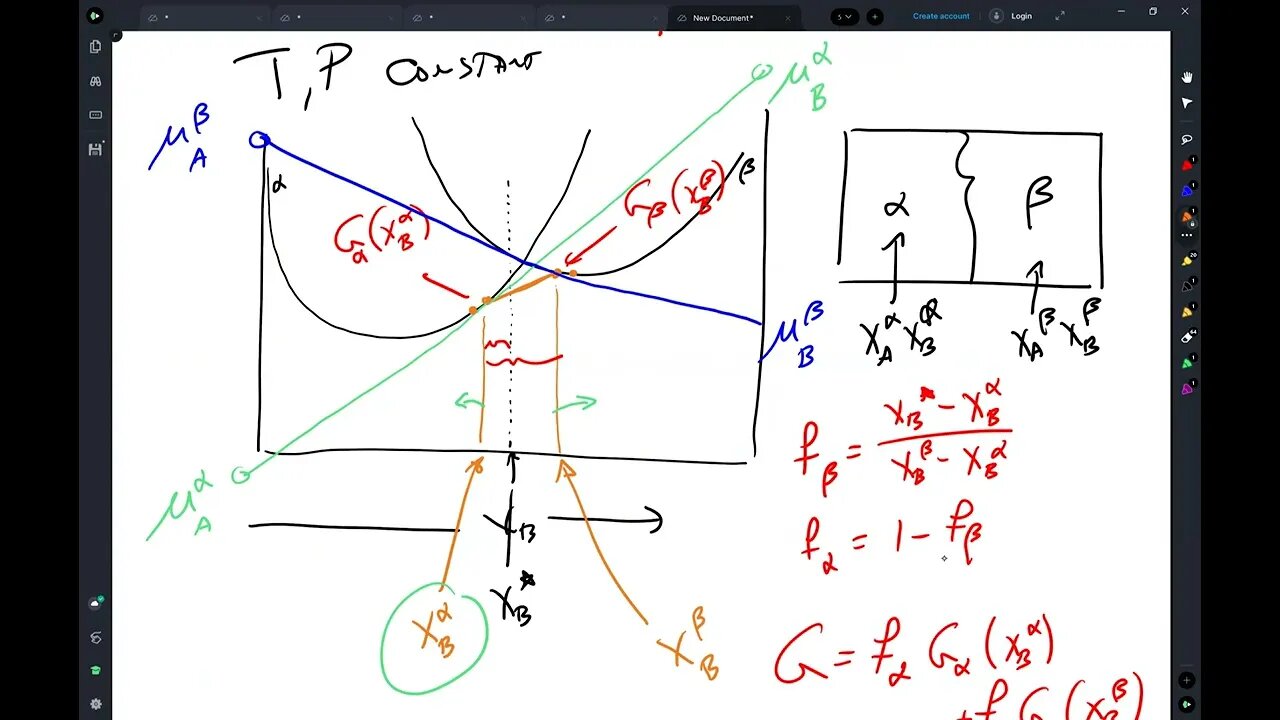 New Document*
5
Create account
Login
T, P constant
μ_A^β
μ_B^α
α
β
G_α(X_B^α)
G_β(X_B^β)
α
β
X_A^α X_B^α
X_A^β X_B^β
μ_B^β
μ_A^α
X_B
X_B^*
X_B^α
X_B^β
f_β = (X_B^* - X_B^α) / (X_B^β - X_B^α)
f_α = 1 - f_β
G = f_α G_α (X_B^α)
+ f G (X_B^β)